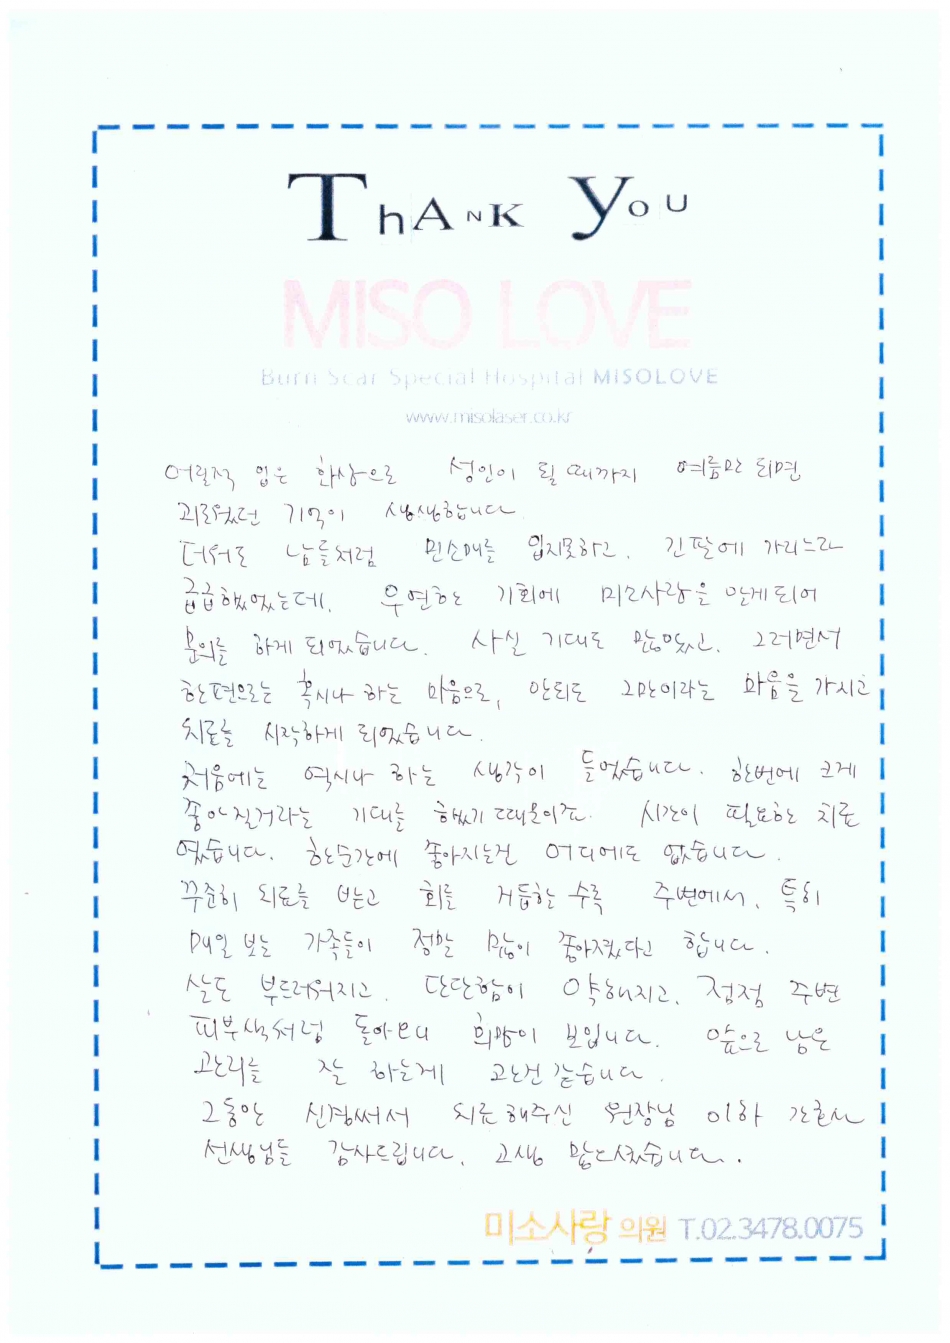 Thank You
MISO LOVE
Burn Scar Special Hospital MISOLOVE
www.misolaser.co.kr
어릴적 입은 화상으로 성인이 될 때까지 여름만 되면
괴로웠던 기억이 생생합니다.
더워도 남들처럼 민소매를 입지못하고, 긴팔에 가리느라
급급했었는데, 우연한 기회에 미소사랑을 알게되어
문의를 하게 되었습니다. 사실 기대도 많았고, 그러면서
한편으로는 혹시나 하는 마음으로, 안되도 그만이라는 마음을 가지고
치료를 시작하게 되었습니다.
처음에는 역시나 하는 생각이 들었습니다. 한번에 크게
좋아질거라는 기대를 했기 때문이죠. 시간이 필요한 치료
였습니다. 한순간에 좋아지는건 어디에도 없습니다.
꾸준히 치료를 받고 회를 거듭할 수록 주변에서, 특히
매일 보는 가족들이 정말 많이 좋아졌다고 합니다.
살도 부드러워지고, 단단함이 약해지고, 점점 주변
피부색처럼 돌아오니 희망이 보입니다. 앞으로 남은
관리를 잘 하는게 관건 같습니다.
그동안 신경써서 치료해주신 원장님 이하 간호사
선생님들 감사드립니다. 고생 많으셨습니다.
미소사랑 의원 T.02.3478.0075